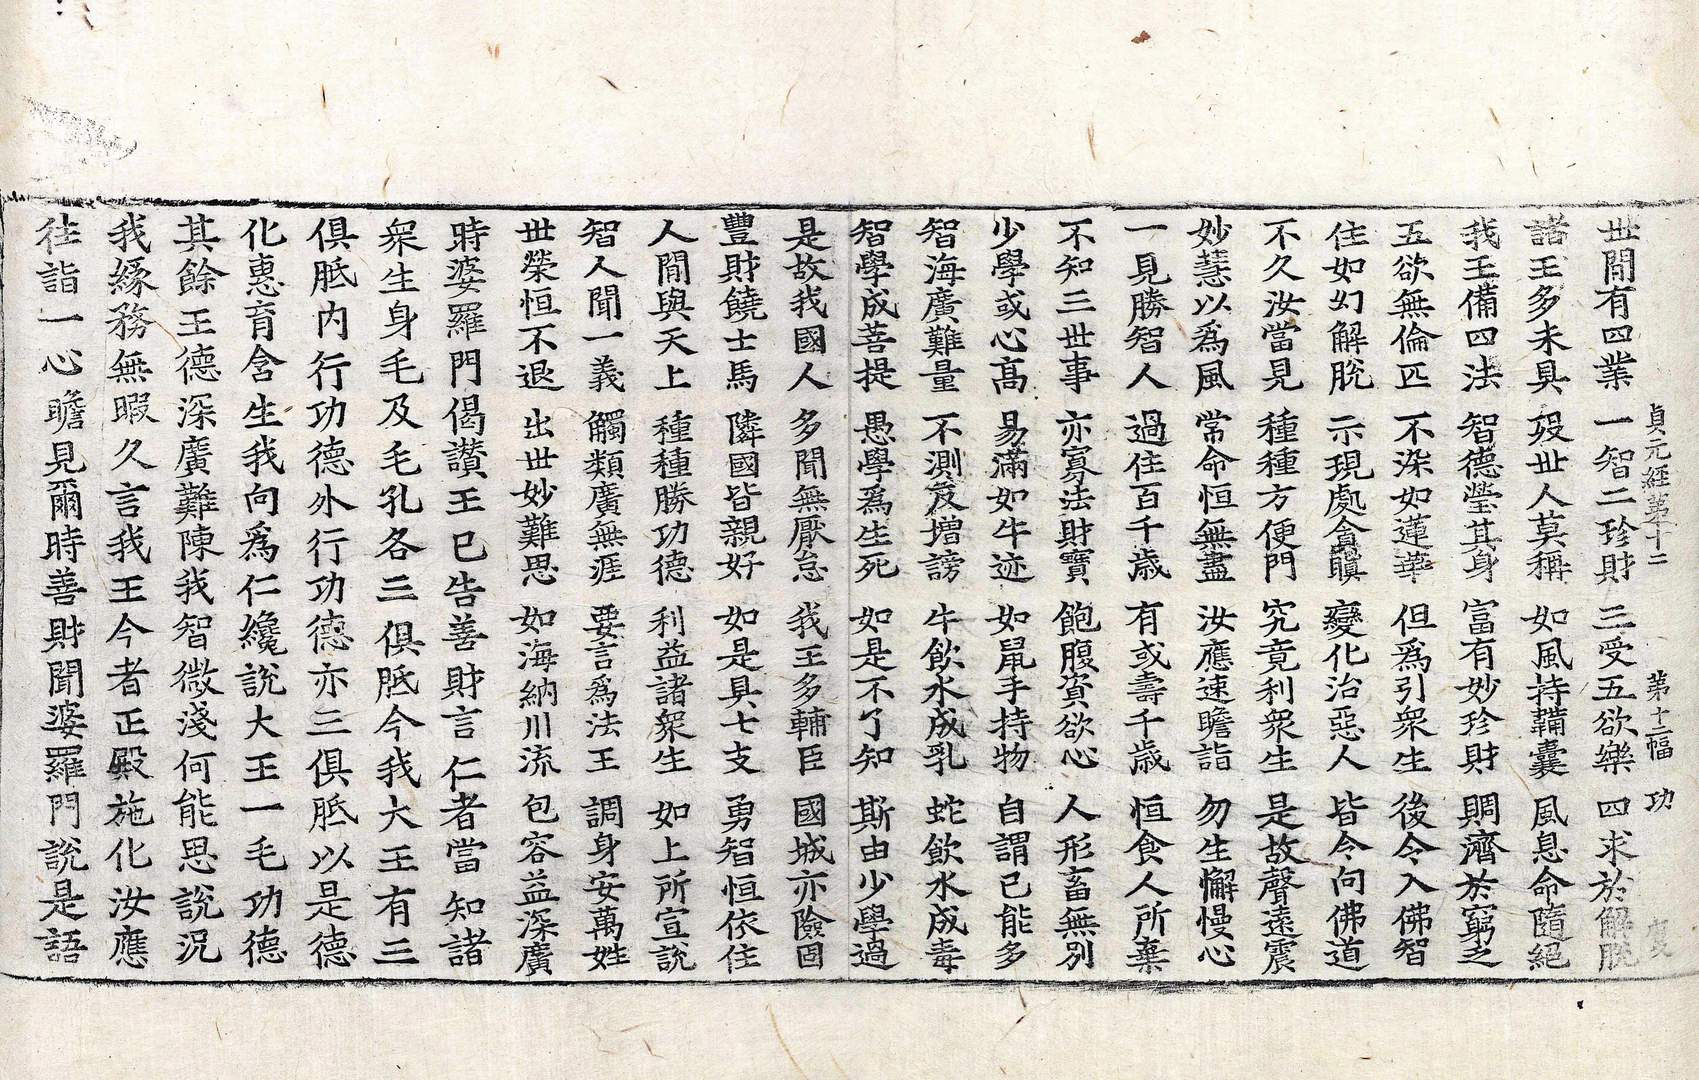 貞元經第十二 第十二幅 功
世間有四業 一智二珍財 三受五欲樂 四求於解脫
諸王多未具 歿世人莫稱 如風持鞴囊 風息命隨絕
我王備四法 智德瑩其身 富有妙珍財 賙濟於窮乏
五欲無倫匹 不染如蓮華 但爲引衆生 後令入佛智
住如幻解脫 示現處貪瞋 變化治惡人 皆令向佛道
不久汝當見 種種方便門 究竟利衆生 是故聲遠震
妙慧以爲風 常命恒無盡 汝應速瞻詣 勿生懈慢心
一見勝智人 過住百千歲 有或壽千歲 恒食人所棄
不知三世事 亦寡法財寶 飽腹資欲心 人形畜無別
少學或心高 易滿如牛迹 如鼠手持物 自謂已能多
智海廣難量 不測反增謗 牛飲水成乳 蛇飲水成毒
智學成菩提 愚學爲生死 如是不了知 斯由少學過
是故我國人 多聞無厭怠 我王多輔臣 國城亦險固
豐財饒士馬 隣國皆親好 如是具七支 勇智恒依住
人間與天上 種種勝功德 利益諸衆生 如上所宣說
智人聞一義 觸類廣無涯 要言爲法王 調身安萬姓
世榮恒不退 出世妙難思 如海納川流 包容益深廣
時婆羅門偈讚王已告善財言仁者當知諸
衆生身毛及毛孔各三俱胝今我大王有三
俱胝內行功德外行功德亦三俱胝以是德
化惠育含生我向爲仁纔說大王一毛功德
其餘王德深廣難陳我智微淺何能思說況
我緣務無暇久言我王今者正殿施化汝應
往詣一心瞻見爾時善財聞婆羅門說是語